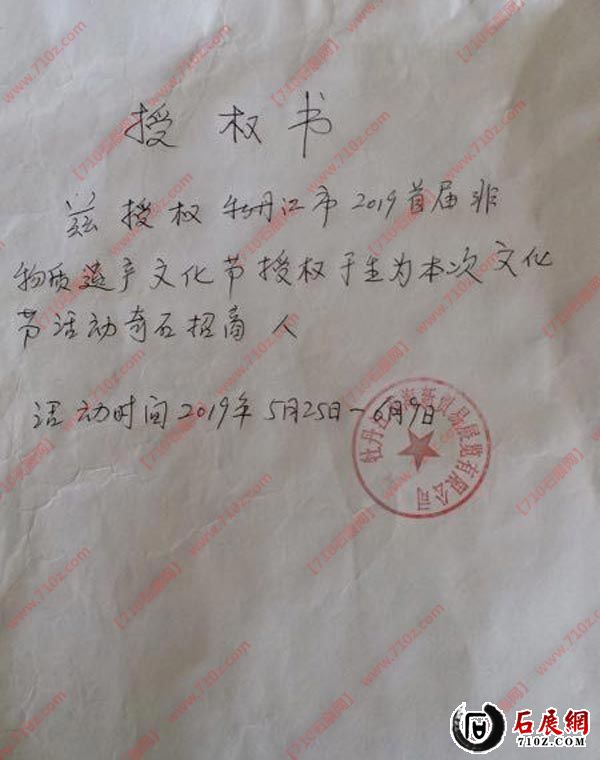 授权书
兹授权牡丹江市2019首届非
物质遗产文化节授权于生为本次文化
节活动奇石招商人
活动时间2019年5月25日~6月9日
贸易展览有限公司
石展網
710z.com
【710石展网】
www.710z.com